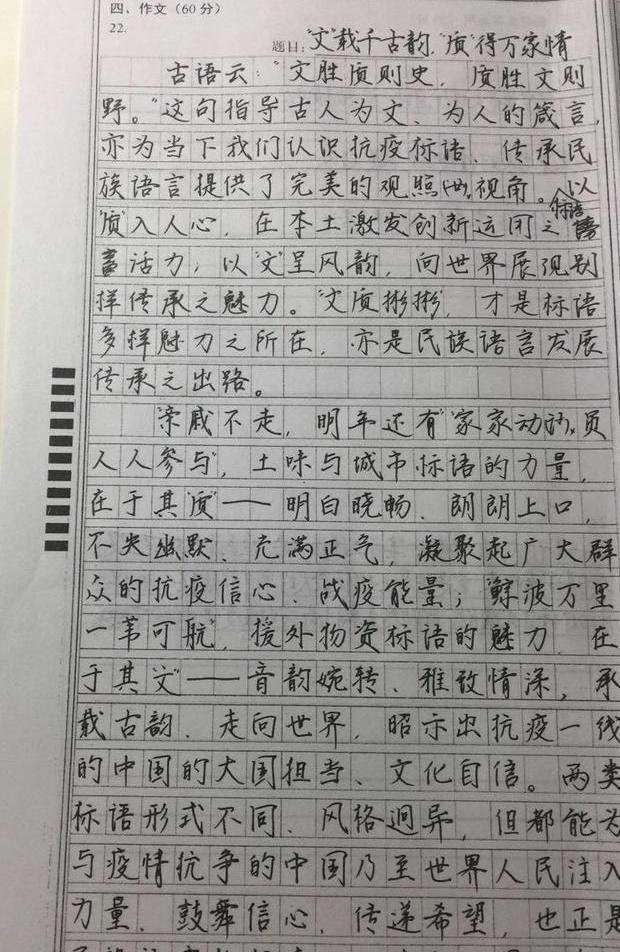 四、作文（60分）
22.
题目："文"载千古韵，"质"得万家情
古语云："文胜质则史，质胜文则
野。"这句指导古人为文、为人的箴言，
亦为当下我们认识抗疫标语、传承民
族语言提供了完美的观照视角。以
"质"入人心，在本土激发创新运用之标语
活力；以"文"呈风韵，向世界展现别
样传承之魅力。"文质彬彬"，才是标语
多样魅力之所在，亦是民族语言发展
传承之出路。
"亲戚不走，明年还有""家家动员
人人参与"，土味与城市标语的力量，
在于其"质"——明白晓畅、朗朗上口，
不失幽默、充满正气，凝聚起广大群
众的抗疫信心、战疫能量；"鲸波万里
一苇可航"，援外物资标语的魅力，在
于其"文"——音韵婉转、雅致情深，承
载古韵、走向世界，昭示出抗疫一线
的中国的大国担当、文化自信。两类
标语形式不同、风格迥异，但都能为
与疫情抗争的中国乃至世界人民注入
力量、鼓舞信心、传递希望，也正是